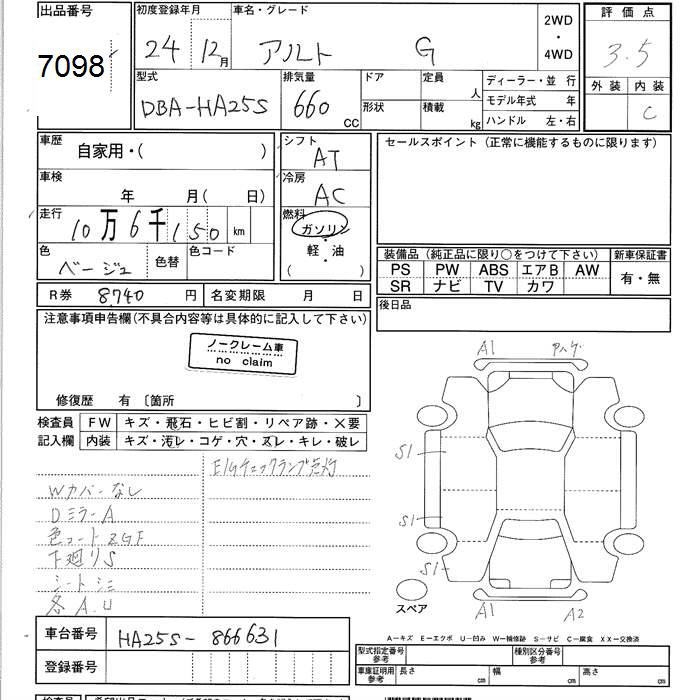 出品番号
7098
初度登録年月
24 12月
車名・グレード
アルト G
2WD
・
4WD
評価点
3.5
外装 内装
C
型式
DBA-HA25S
排気量
660 CC
ドア
形状
定員 人
積載 kg
ディーラー・並行
モデル年式 年
ハンドル 左・右
車歴
自家用・( )
車検
年 月( 日)
走行
10万6千150 km
色
ベージュ
色替
色コード
シフト
AT
冷房
AC
燃料
ガソリン
・
軽・油
( )
セールスポイント(正常に機能するものに限ります)
装備品(純正品に限り○をつけて下さい)
PS PW ABS エアB AW
SR ナビ TV カワ
新車保証書
有・無
後日品
R券 8740 円
名変期限 月 日
注意事項申告欄(不具合内容等は具体的に記入して下さい)
ノークレーム車
no claim
修復歴 有 〔箇所 〕
検査員
記入欄
FW キズ・飛石・ヒビ割・リペア跡・X要
内装 キズ・汚レ・コゲ・穴・スレ・キレ・破レ
E/Gチェックランプ点灯
Wカバーなし
DミラーA
色コードZGF
下廻りS
シートシミ
各A.U
A1
S1
S1
S1
A1
A2
スペア
A−キズ E−エクボ U−凹み W−補修跡 S−サビ C−腐食 XX−交換済
車台番号 HA25S-866631
登録番号
型式指定番号
参考
種別区分番号
参考
車庫証明用
参考
長さ cm
幅 cm
高さ cm